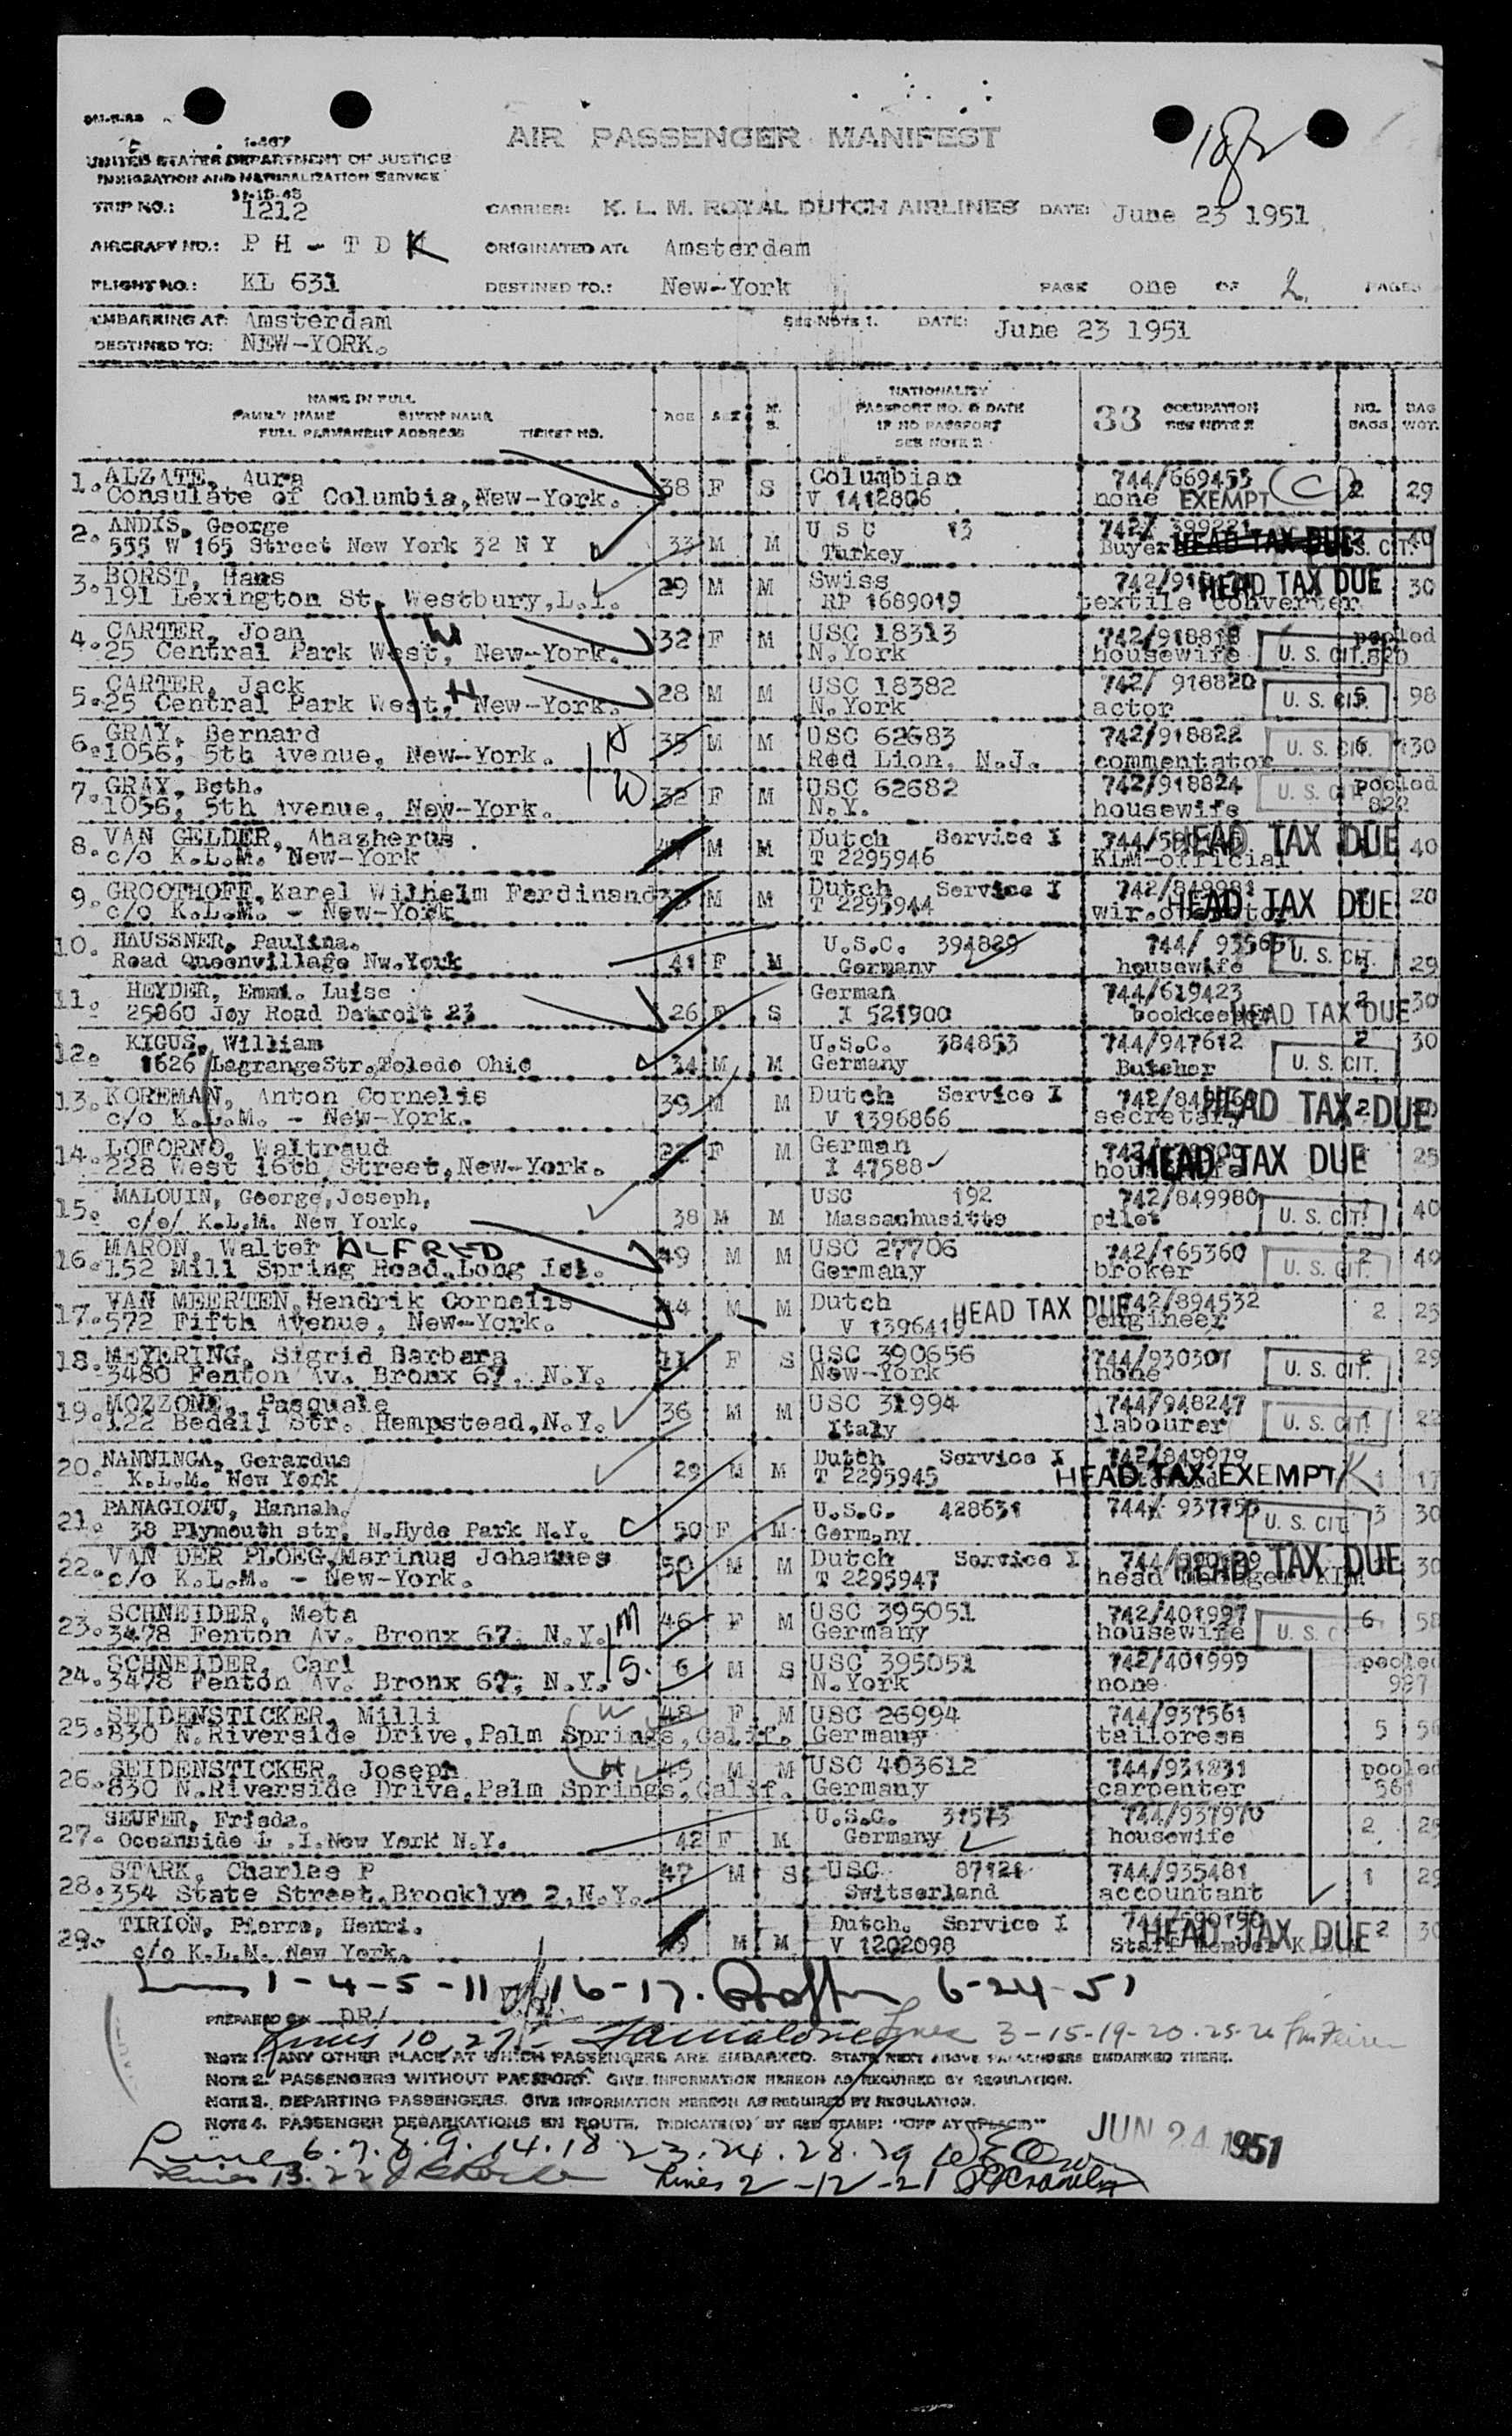 AIR PASSENGER MANIFEST
182
I-407
UNITED STATES DEPARTMENT OF JUSTICE
IMMIGRATION AND NATURALIZATION SERVICE
TRIP NO.: 1212 CARRIER: K. L. M. ROYAL DUTCH AIRLINES DATE: June 23 1951
AIRCRAFT NO.: P H - T D K ORIGINATED AT: Amsterdam
FLIGHT NO.: KL 631 DESTINED TO.: New-York PAGE one OF 2. PAGES
EMBARKING AT: Amsterdam SEE NOTE 1. DATE: June 23 1951
DESTINED TO: NEW-YORK.
NAME IN FULL
FAMILY NAME GIVEN NAME
FULL PERMANENT ADDRESS TICKET NO.
AGE SEX M. S.
NATIONALITY
PASSPORT NO. & DATE
IF NO PASSPORT
SEE NOTE 2
33 OCCUPATION
SEE NOTE 2
NO. BAGS BAG WGT.
1. ALZATE, Aura Columbian 744/669453
Consulate of Columbia, New-York. 38 F S V 1412806 none EXEMPT C 2 29
2. ANDIS, George U S C 13 742/ 399221
555 W 165 Street New York 32 N Y 33 M M Turkey Buyer HEAD TAX DUE U. S. CIT. 40
3. BORST, Hans Swiss HEAD TAX DUE
191 Lexington St, Westbury, L.I. 29 M M RP 1689019 textile converter 30
4. CARTER, Joan W USC 18313 742/918818 pooled
25 Central Park West, New-York. 32 F M N.York housewife U. S. CIT. 820
5. CARTER, Jack USC 18382 742/ 918820
25 Central Park West, H New-York. 28 M M N.York actor U. S. CIT. 5 98
6. GRAY, Bernard H USC 62683 742/918822
1056, 5th Avenue, New-York. 35 M M Red Lion, N.J. commentator U. S. CIT. 6 130
7. GRAY, Beth. W USC 62682 742/918824 pooled
1056, 5th Avenue, New-York. 32 F M N.Y. housewife U. S. CIT. 822
8. VAN GELDER, Ahazherus Dutch Service I HEAD TAX DUE
c/o K.L.M. New-York M M T 2295946 KLM-official 40
9. GROOTHOFF, Karel Wilhelm Ferdinand Dutch Service I 742/849981
c/o K.L.M. - New-York 33 M M T 2295944 wir.operator HEAD TAX DUE 20
10. HAUSSNER, Paulina. U.S.C. 394829 744/ 93565
Road Queenvillage Nw.York 41 F M Germany housewife U. S. CIT. 29
11. HEYDER, Emmi. Luise German 744/619423 2 30
25860 Joy Road Detroit 23 26 F S I 521900 bookkeeper HEAD TAX DUE
12. KIGUS, William U.S.C. 384853 744/947612 2 30
1626 LagrangeStr.Toledo Ohio 34 M M Germany Butcher U. S. CIT.
13. KOREMAN, Anton Cornelis Dutch Service I
c/o K.L.M. - New-York. 39 M M V 1396866 secretary HEAD TAX DUE 2
14. LOFORNO, Waltraud German
228 West 16th Street, New-York. 22 F M I 47588 housewife HEAD TAX DUE 25
15. MALOUIN, George, Joseph, USC 192 742/849980
c/o/ K.L.M. New York. 38 M M Massachusitts pilot U. S. CIT. 40
16. MARON, Walter ALFRED USC 27706 742/165360
152 Mill Spring Road, Long Isl. 49 M M Germany broker U. S. CIT. 2 40
17. VAN MEERTEN, Hendrik Cornelis Dutch HEAD TAX DUE 742/894532
572 Fifth Avenue, New-York. 44 M M V 1396419 engineer 2 25
18. MEYERING, Sigrid Barbara USC 390656 744/930307
3480 Fenton Av. Bronx 67, N.Y. 11 F S New-York none U. S. CIT. 2 29
19. MOZZONE, Pasquale USC 31994 744/948247
122 Bedell Str. Hempstead, N.Y. 36 M M Italy labourer U. S. CIT. 22
20. NANNINGA, Gerardus Dutch Service I 742/849979
K.L.M. New York 29 M M T 2295945 HEAD TAX EXEMPT K 1 17
21. PANAGIOTU, Hannah. U.S.C. 428631 744/ 937755
38 Plymouth str. N.Hyde Park N.Y. 50 F M Germany U. S. CIT. 3 30
22. VAN DER PLOEG, Marinus Johannes Dutch Service I HEAD TAX DUE
c/o K.L.M. - New-York. 50 M M T 2295947 head manager KLM 30
23. SCHNEIDER, Meta M USC 395051 742/401997
3478 Fenton Av. Bronx 67, N.Y. 46 F M Germany housewife U. S. C 6 58
24. SCHNEIDER, Carl USC 395051 742/401999 pooled
3478 Fenton Av. Bronx 67, N.Y. S. 6 M S N.York none 997
25. SEIDENSTICKER, Milli W USC 26994 744/937561
830 N.Riverside Drive, Palm Springs, Calif. 48 F M Germany tailoress 5 56
26. SEIDENSTICKER, Joseph H USC 403612 744/931231 pooled
830 N.Riverside Drive, Palm Springs, Calif. 45 M M Germany carpenter 561
27. SEUFER, Frieda. U.S.C. 31573 744/937970
Oceanside L .I.New York N.Y. 42 F M Germany housewife 2 25
28. STARK, Charles P USC 87121 744/935481
354 State Street, Brooklyn 2, N.Y. 47 M S Switserland accountant 1 29
29. TIRION, Pierre, Henri. Dutch. Service I 744/590150
c/o K.L.M. New York. M M V 1202098 Staff member K.L.M. HEAD TAX DUE 2 30
Lines 1-4-5-11 16-17. 6-24-51
PREPARED BY DR/
Lines 10, 27 Lines 3-15-19-20-25-26
NOTE 1. ANY OTHER PLACE AT WHICH PASSENGERS ARE EMBARKED. STATE NEXT ABOVE PASSENGERS EMBARKED THERE.
NOTE 2. PASSENGERS WITHOUT PASSPORT. GIVE INFORMATION HEREON AS REQUIRED BY REGULATION.
NOTE 3. DEPARTING PASSENGERS. GIVE INFORMATION HEREON AS REQUIRED BY REGULATION.
NOTE 4. PASSENGER DEBARKATIONS EN ROUTE. INDICATE(D) BY RED STAMP: "OFF AT (PLACE)"
JUN 24 1951
Lines 6.7.8.9.14.18 23.24.28.29
Lines 13.22 Lines 2-12-21